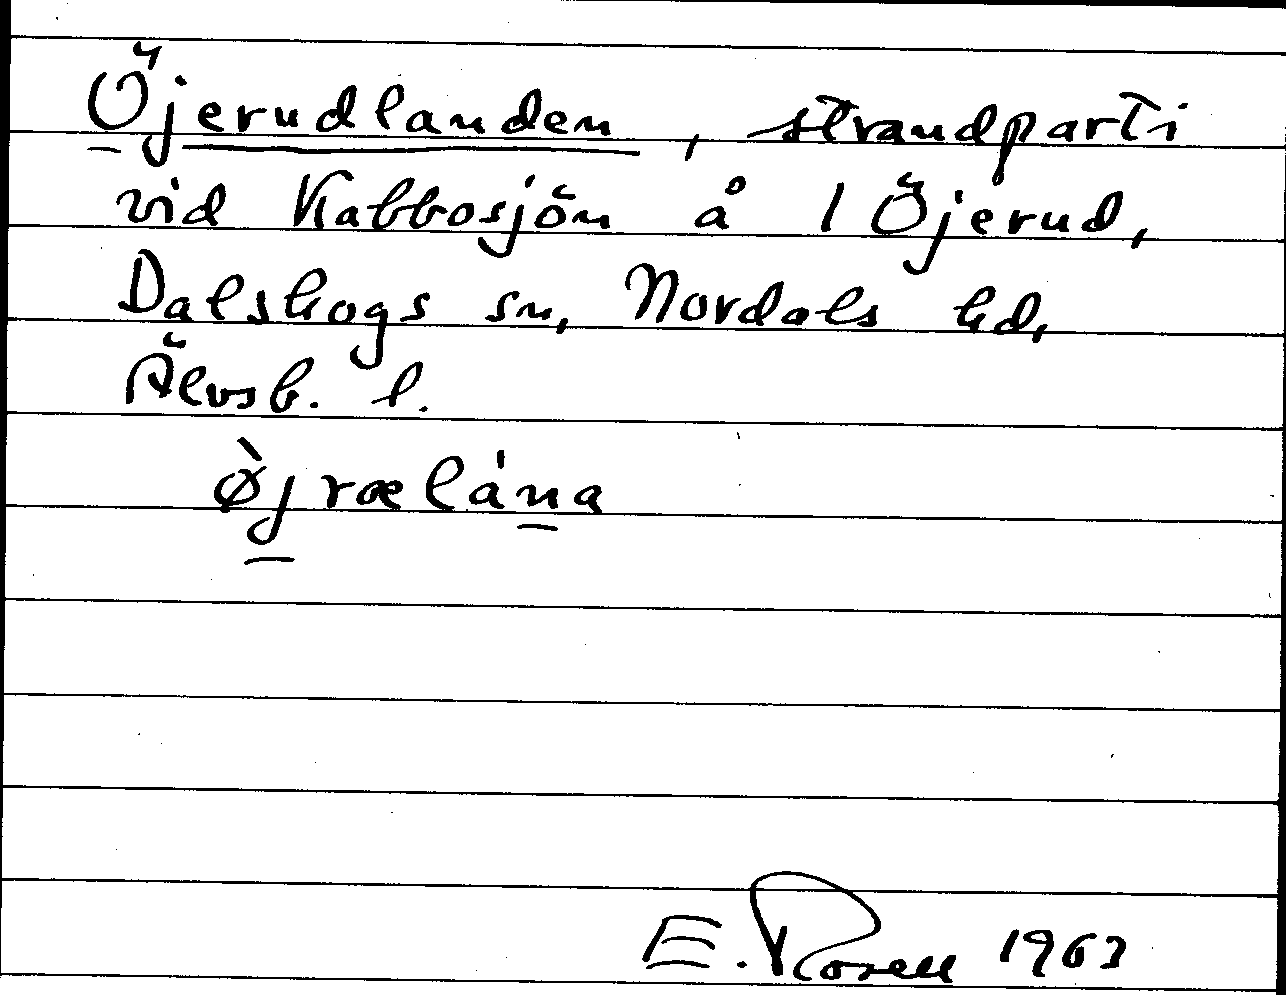 Öjerudlanden, strandparti
vid Kabbosjön å 1 Öjerud,
Dalskogs sn, Nordals hd,
Älvsb. l.
ø̀jrælána
E. Rosell 1963